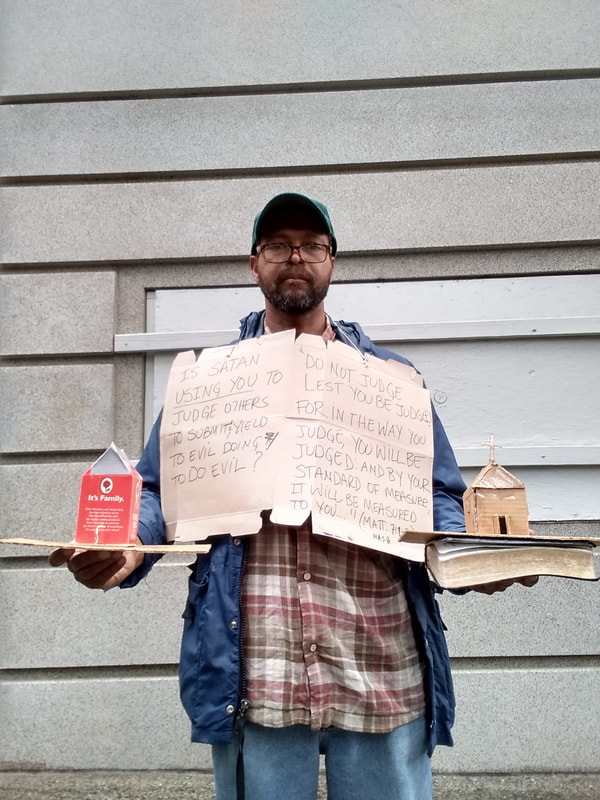 IS SATAN
USING YOU TO
JUDGE OTHERS
TO SUBMIT/YIELD
TO EVIL DOING
TO DO EVIL?
"DO NOT JUDGE
LEST YOU BE JUDGED
FOR IN THE WAY YOU
JUDGE, YOU WILL BE
JUDGED. AND BY YOUR
STANDARD OF MEASURE
IT WILL BE MEASURED
TO YOU."
(MATT
NASB
It's Family.